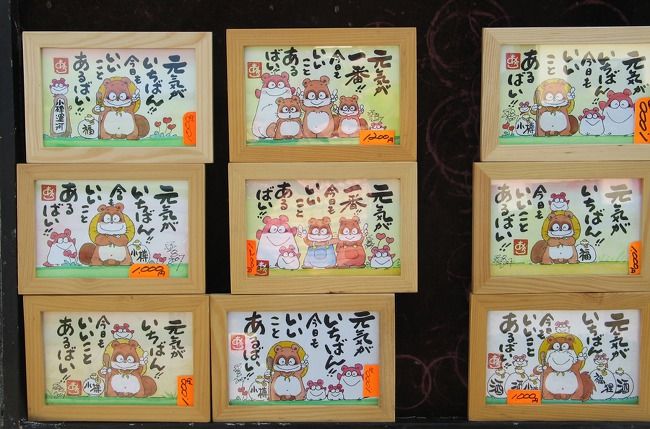 元気が
いちばん!!
今日も
いいこと
あるばい!!
小樽運河
福
元気が
一番!!
今日も
いいこと
ある
ばい!!
1200円
元気が
いちばん!!
今日も
いいこと
あるばい!!
小樽
1000
元気が
いちばん!!
今日も
いいこと
あるばい!!
小樽
1000円
元気が
一番!!
今日も
いいこと
ある
ばい!!
元気が
いちばん!!
今日も
いいこと
あるばい!!
福
1000円
元気が
いちばん!!
今日も
いいこと
あるばい!!
小樽
1000円
元気が
いちばん!!
今日も
いいこと
あるばい!!
小樽
元気が
いちばん!!
今日も
いいこと
あるばい!!
酒
小樽
福
酒
1000円